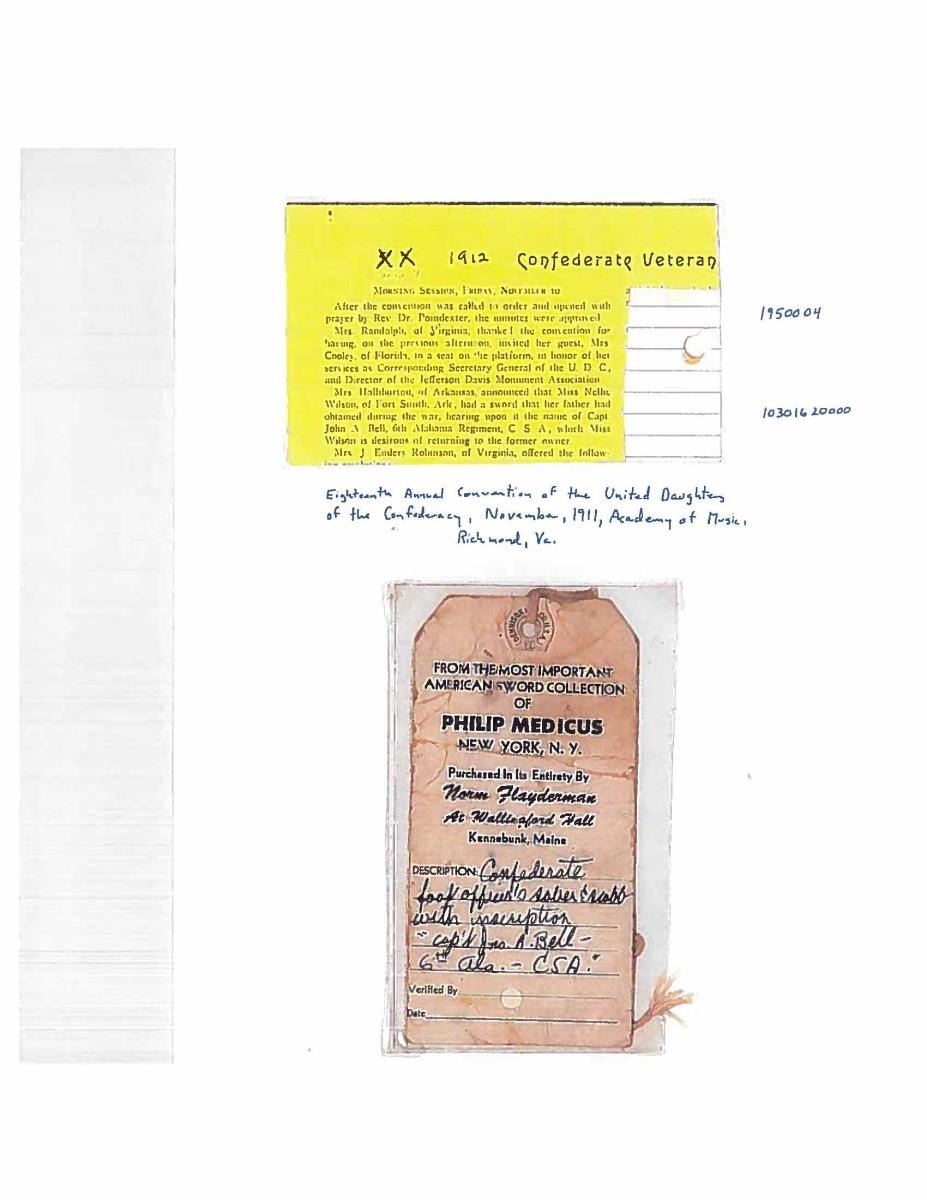 XX 1912 Confederate Veteran
MORNING SESSION, FRIDAY, NOVEMBER 10
After the convention was called to order and opened with
prayer by Rev Dr. Poindexter, the minutes were approved
Mrs. Randolph, of Virginia, thanked the convention for
having, on the previous afternoon, invited her guest, Mrs
Cooley, of Florida, to a seat on the platform, in honor of her
services as Corresponding Secretary General of the U. D. C.,
and Director of the Jefferson Davis Monument Association
Mrs Halliburton, of Arkansas, announced that Miss Nellie
Wilson, of Fort Smith, Ark, had a sword that her father had
obtained during the war, bearing upon it the name of Capt
John A Bell, 6th Alabama Regiment, C S A, which Miss
Wilson is desirous of returning to the former owner
Mrs J Enders Robinson, of Virginia, offered the follow-
1950004
103016 20000
Eighteenth Annual Convention of the United Daughters
of the Confederacy, November, 1911, Academy of Music,
Richmond, Va.
DENNISON U.S.A.
FROM THE MOST IMPORTANT
AMERICAN SWORD COLLECTION
OF
PHILIP MEDICUS
NEW YORK, N. Y.
Purchased In Its Entirety By
Norm Flayderman
At Wallingford Hall
Kennebunk, Maine
DESCRIPTION: Confederate
foot officer's saber & scabb
with inscription
"Cap't Jno. A. Bell -
6th Ala. - CSA."
Verified By
Date